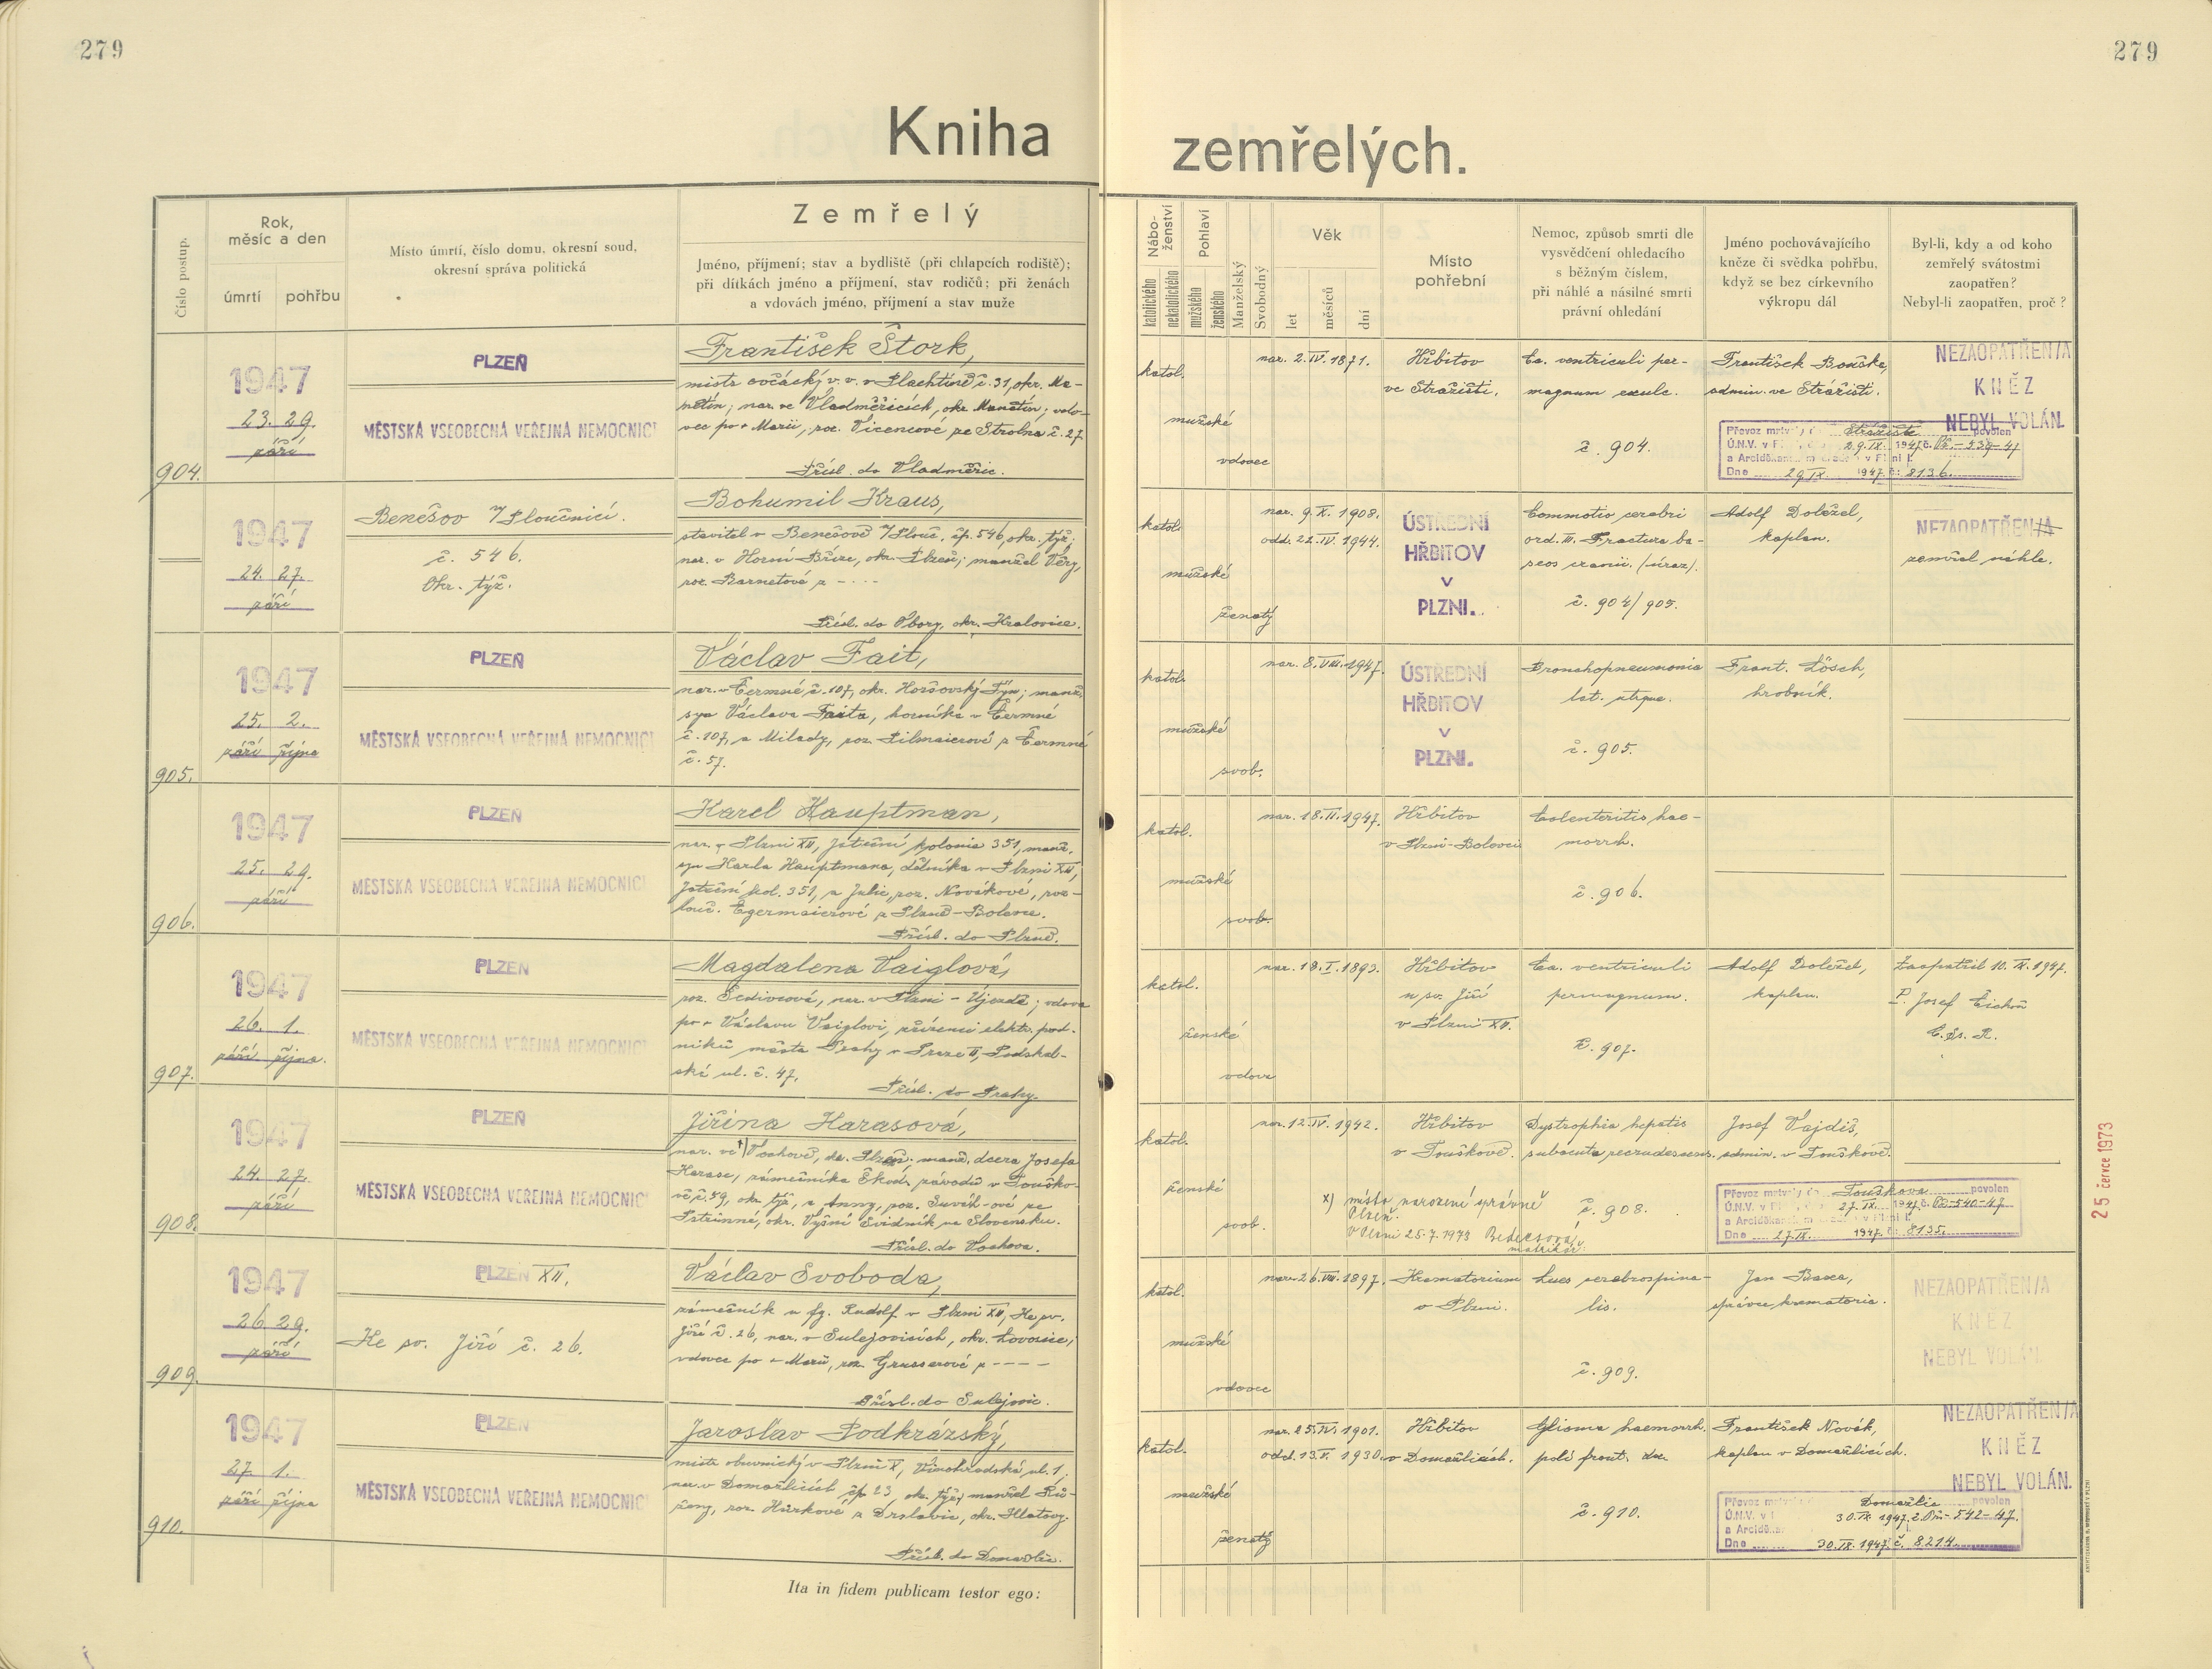 279
279
Kniha
zemřelých.
Číslo postup.
Rok,
měsíc a den
úmrtí
pohřbu
Místo úmrtí, číslo domu, okresní soud,
okresní správa politická
Zemřelý
Jméno, příjmení; stav a bydliště (při chlapcích rodiště);
při dítkách jméno a příjmení, stav rodičů; při ženách
a vdovách jméno, příjmení a stav muže
Nábo-
ženství
katolického
nekatolického
Pohlaví
mužského
ženského
Manželský
Svobodný
Věk
let
měsíců
dní
Místo
pohřební
Nemoc, způsob smrti dle
vysvědčení ohledacího
s běžným číslem,
při náhlé a násilné smrti
právní ohledání
Jméno pochovávajícího
kněze či svědka pohřbu,
když se bez církevního
výkropu dál
Byl-li, kdy a od koho
zemřelý svátostmi
zaopatřen?
Nebyl-li zaopatřen, proč?
904.
1947
23. 29.
září
PLZEŇ
MĚSTSKÁ VŠEOBECNÁ VEŘEJNÁ NEMOCNICE
František Štork,
mistr ovčácký v. v. v Plachtíně č. 31, okr. Ma-
nětín; nar. ve Vladměřicích, okr. Manětín; vdo-
vec po + Marii, roz. Vicencové ze Strolna č. 27.
Přísl. do Vladměřic.
katol.
mužské
vdovec
nar. 2. IV. 1871.
Hřbitov
ve Stražišti.
Ca. ventriculi per-
magnum exulc.
č. 904.
František Bouška,
admin. ve Strážišti.
NEZAOPATŘEN/A
KNĚZ
NEBYL VOLÁN.
Převoz mrtvoly do Strážiště povolen
Ú.N.V. v Plzni 29. IX. 1947 č. Př.-539-47
a Arciděkan. v Plzni
Dne 29. IX. 1947 č: 8136.
1947
24. 27.
září
Benešov n/Ploučnicí.
č. 546.
Okr. týž.
Bohumil Kraus,
stavitel v Benešově n/Plouč. čp. 546, okr. týž;
nar. v Horní Bříze, okr. Plzeň; manžel Věry,
roz. Barnetové z - . . .
Přísl. do Obory, okr. Kralovice.
katol.
mužské
ženatý
nar. 9. X. 1908.
odd. 22. IV. 1944.
ÚSTŘEDNÍ
HŘBITOV
V
PLZNI.
Commotio cerebri
ord. III. Fractura ba-
seos cranii. (úraz).
č. 904/905.
Adolf Doležel,
kaplan.
NEZAOPATŘEN/A
zemřel náhle.
905.
1947
25. 2.
září října
PLZEŇ
MĚSTSKÁ VŠEOBECNÁ VEŘEJNÁ NEMOCNICE
Václav Fait,
nar. v Čermné č. 107, okr. Horšovský Týn; manž.
syn Václava Faita, horníka v Čermné
č. 107, a Milady, roz. Pilmaierové z Čermné
č. 57.
katol.
mužské
svob.
nar. 8. VIII. 1947.
ÚSTŘEDNÍ
HŘBITOV
V
PLZNI.
Bronchopneumonia
lat. utque.
č. 905.
Frant. Lösch,
hrobník.
906.
1947
25. 29.
září
PLZEŇ
MĚSTSKÁ VŠEOBECNÁ VEŘEJNÁ NEMOCNICE
Karel Hauptman,
nar. v Plzni XII, Jateční kolonie 351, manž.
syn Karla Hauptmana, dělníka v Plzni XII,
Jateční kol. 351, a Julie, roz. Novákové, roz-
louč. Egermaierové z Plzně-Bolevce.
Přísl. do Plzně.
katol.
mužské
svob.
nar. 18. II. 1947.
Hřbitov
v Plzni-Bolevci
Colenteritis hae-
morrh.
č. 906.
907.
1947
26. 1.
září října.
PLZEŇ
MĚSTSKÁ VŠEOBECNÁ VEŘEJNÁ NEMOCNICE
Magdalena Vaiglová,
roz. Šedivcová, nar. v Plzni - Újezdě; vdova
po + Václavu Vaiglovi, zřízenci elektr. pod-
niků města Prahy v Praze II, Podskal-
ská ul. č. 47.
Přísl. do Prahy.
katol.
ženské
vdova
nar. 18. I. 1893.
Hřbitov
u sv. Jiří
v Plzni XII.
Ca. ventriculi
permagnum.
č. 907.
Adolf Doležel,
kaplan.
Zaopatřil 10. IX. 1947.
P. Josef Čichoň
C.Ss.R.
908.
1947
24. 27.
září
PLZEŇ
MĚSTSKÁ VŠEOBECNÁ VEŘEJNÁ NEMOCNICE
Jiřina Harasová,
nar. ve x) Vochově, okr. Plzeň. manž. dcera Josefa
Harase, zámečníka Škod. závodů v Touško-
vě č. 59, okr. týž, a Anny, roz. Suváh-ové ze
Pstrinné, okr. Vyšní Svidník na Slovensku.
Přísl. do Vochova.
katol.
ženské
svob.
nar. 12. IV. 1942.
x) místo narození správně
Plzeň.
V Plzni 25.7.1973
matrikář.
Hřbitov
v Touškově.
Dystrophia hepatis
subacuta recrudescens.
č. 908.
Josef Vajdiš,
admin. v Touškově.
Převoz mrtvoly do Touškova povolen
Ú.N.V. v Plzni 27. IX. 1947 č. Př-540-47
a Arciděkan. v Plzni
Dne 27. IX. 1947 č: 8135.
25 července 1973
909.
1947
26. 29.
září
PLZEŇ XII.
Ke sv. Jiří č. 26.
Václav Svoboda,
zámečník u fy. Rudolf v Plzni XII, Ke sv.
Jiří č. 26, nar. v Sulejovicích, okr. Lovosice;
vdovec po + Marii, roz. Grusserové z - - - -
Přísl. do Sulejovic.
katol.
mužské
vdovec
nar. 26. VIII. 1897.
Krematorium
v Plzni.
Lues cerebrospina-
lis.
č. 909.
Jan
správce krematoria.
NEZAOPATŘEN/A
KNĚZ
NEBYL VOLÁN.
910.
1947
27. 1.
září října
PLZEŇ
MĚSTSKÁ VŠEOBECNÁ VEŘEJNÁ NEMOCNICE
Jaroslav Podkrázský,
mistr obuvnický v Plzni X, Vinohradská ul. 1,
nar. v Domažlicích čp. 23 okr. týž; manžel Rů-
ženy, roz. Hůrkové z Drslavic, okr. Klatovy.
Přísl. do Domažlic.
katol.
mužské
ženatý
nar. 25. IV. 1901.
odd. 13. V. 1930.
Hřbitov
v Domažlicích.
Glioma haemorrh.
poli front. dx.
č. 910.
František Novák,
kaplan v Domažlicích.
NEZAOPATŘEN/A
KNĚZ
NEBYL VOLÁN.
Převoz mrtvoly Domažlic povolen
Ú.N.V. v 30. IX. 1947 č. Př.-542-47.
a Arciděkan.
Dne 30. IX. 1947 č. 8214.
Ita in fidem publicam testor ego: